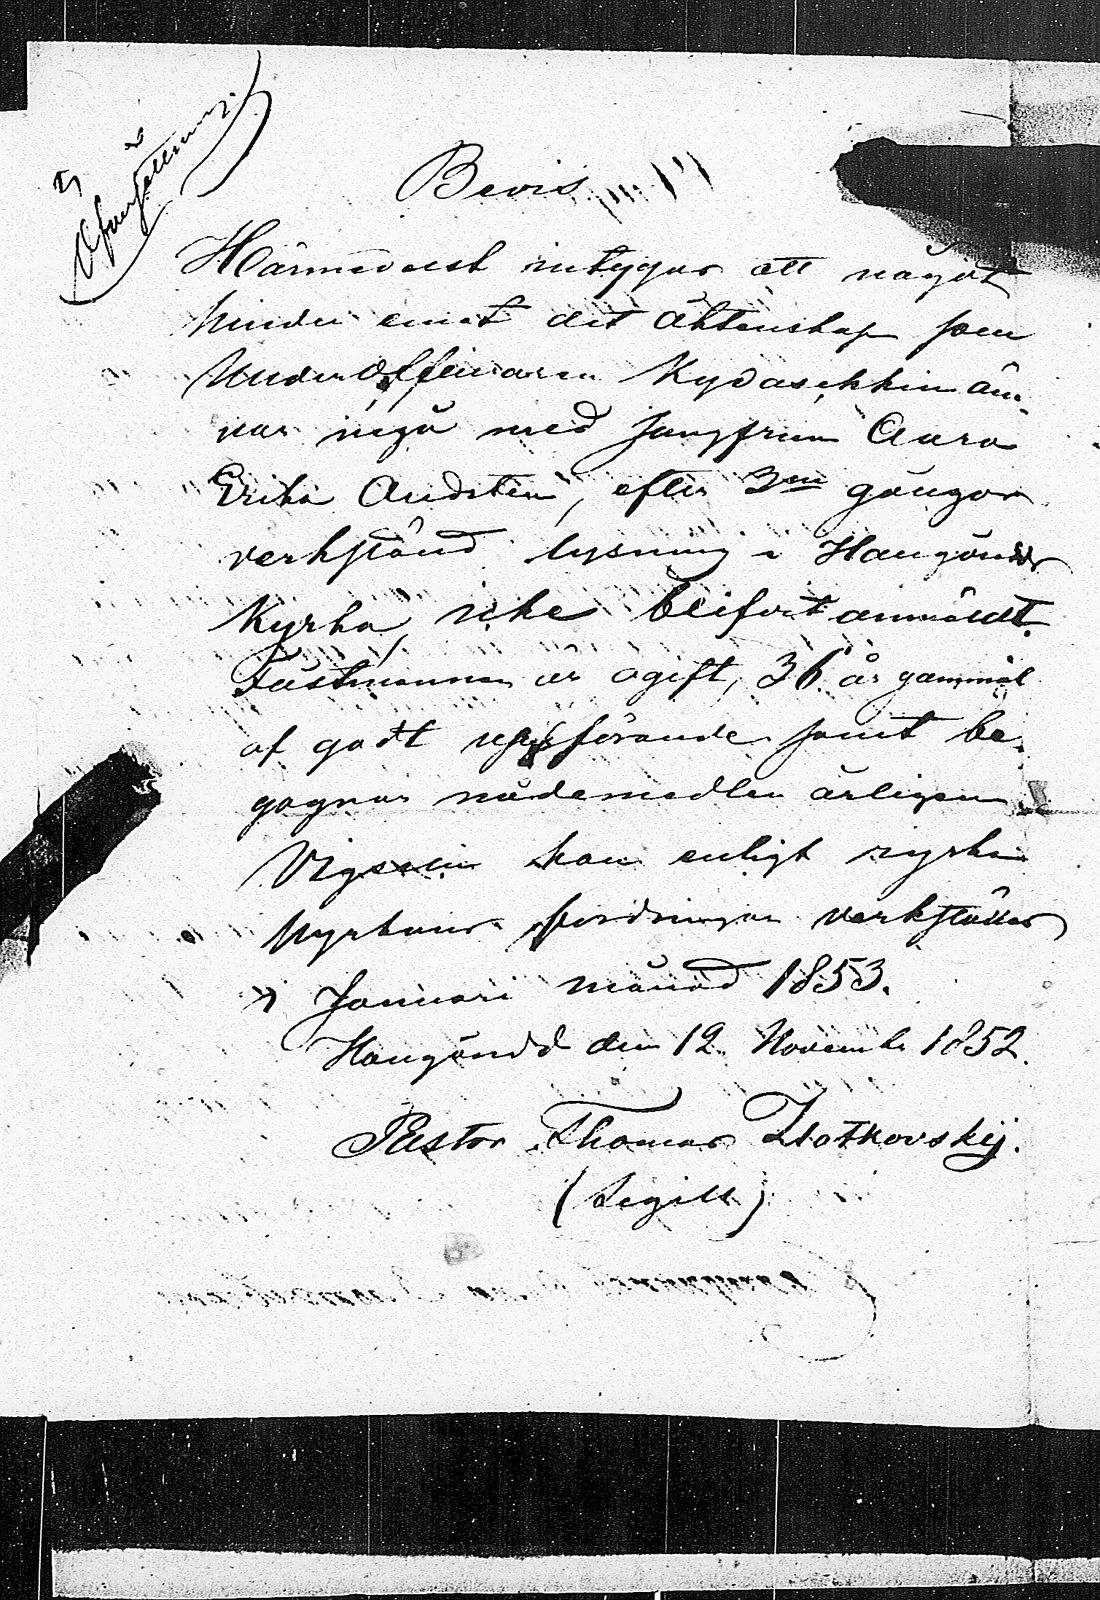 Öfversättning.
Bevis
Härmedelst intygas att något
hinder emot det äktenskap som
Underofficeraren Kydaschkin äm-
nar ingå med Jungfrun Aura
Erika Andstén, efter 3ne gångor
verkstäld lysning i Hangöudd
Kyrka, icke blifvit anmäldt.
Fästmannen är ogift, 36 år gammal
af godt uppförande samt be-
gagnar nådemedlen årligen
Vigseln kan enligt ryska
kyrkans fordringar verkställas
i Januari månad 1853.
Hangöudd den 12 Novemb. 1852.
Pastor Thomas Zlotkovskij.
(Sigill)